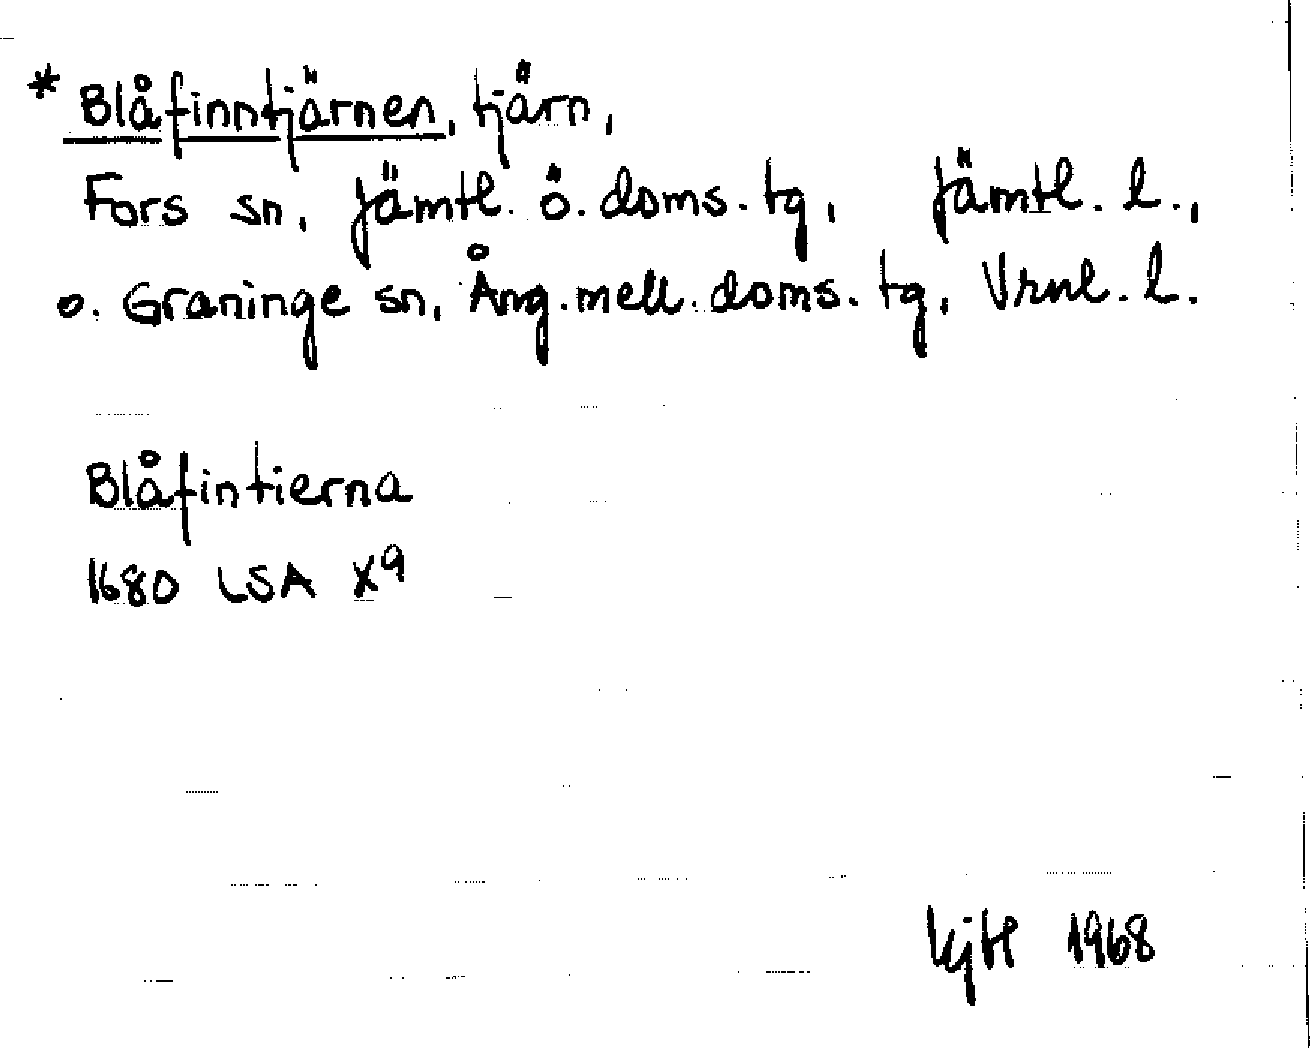 * Blåfinntjärnen, tjärn,
Fors sn, Jämtl. ö. doms. tg, Jämtl. l.,
o. Graninge sn, Ång. mell. doms. tg, Vrnl. l.
Blåfintierna
1680 LSA X9
1968